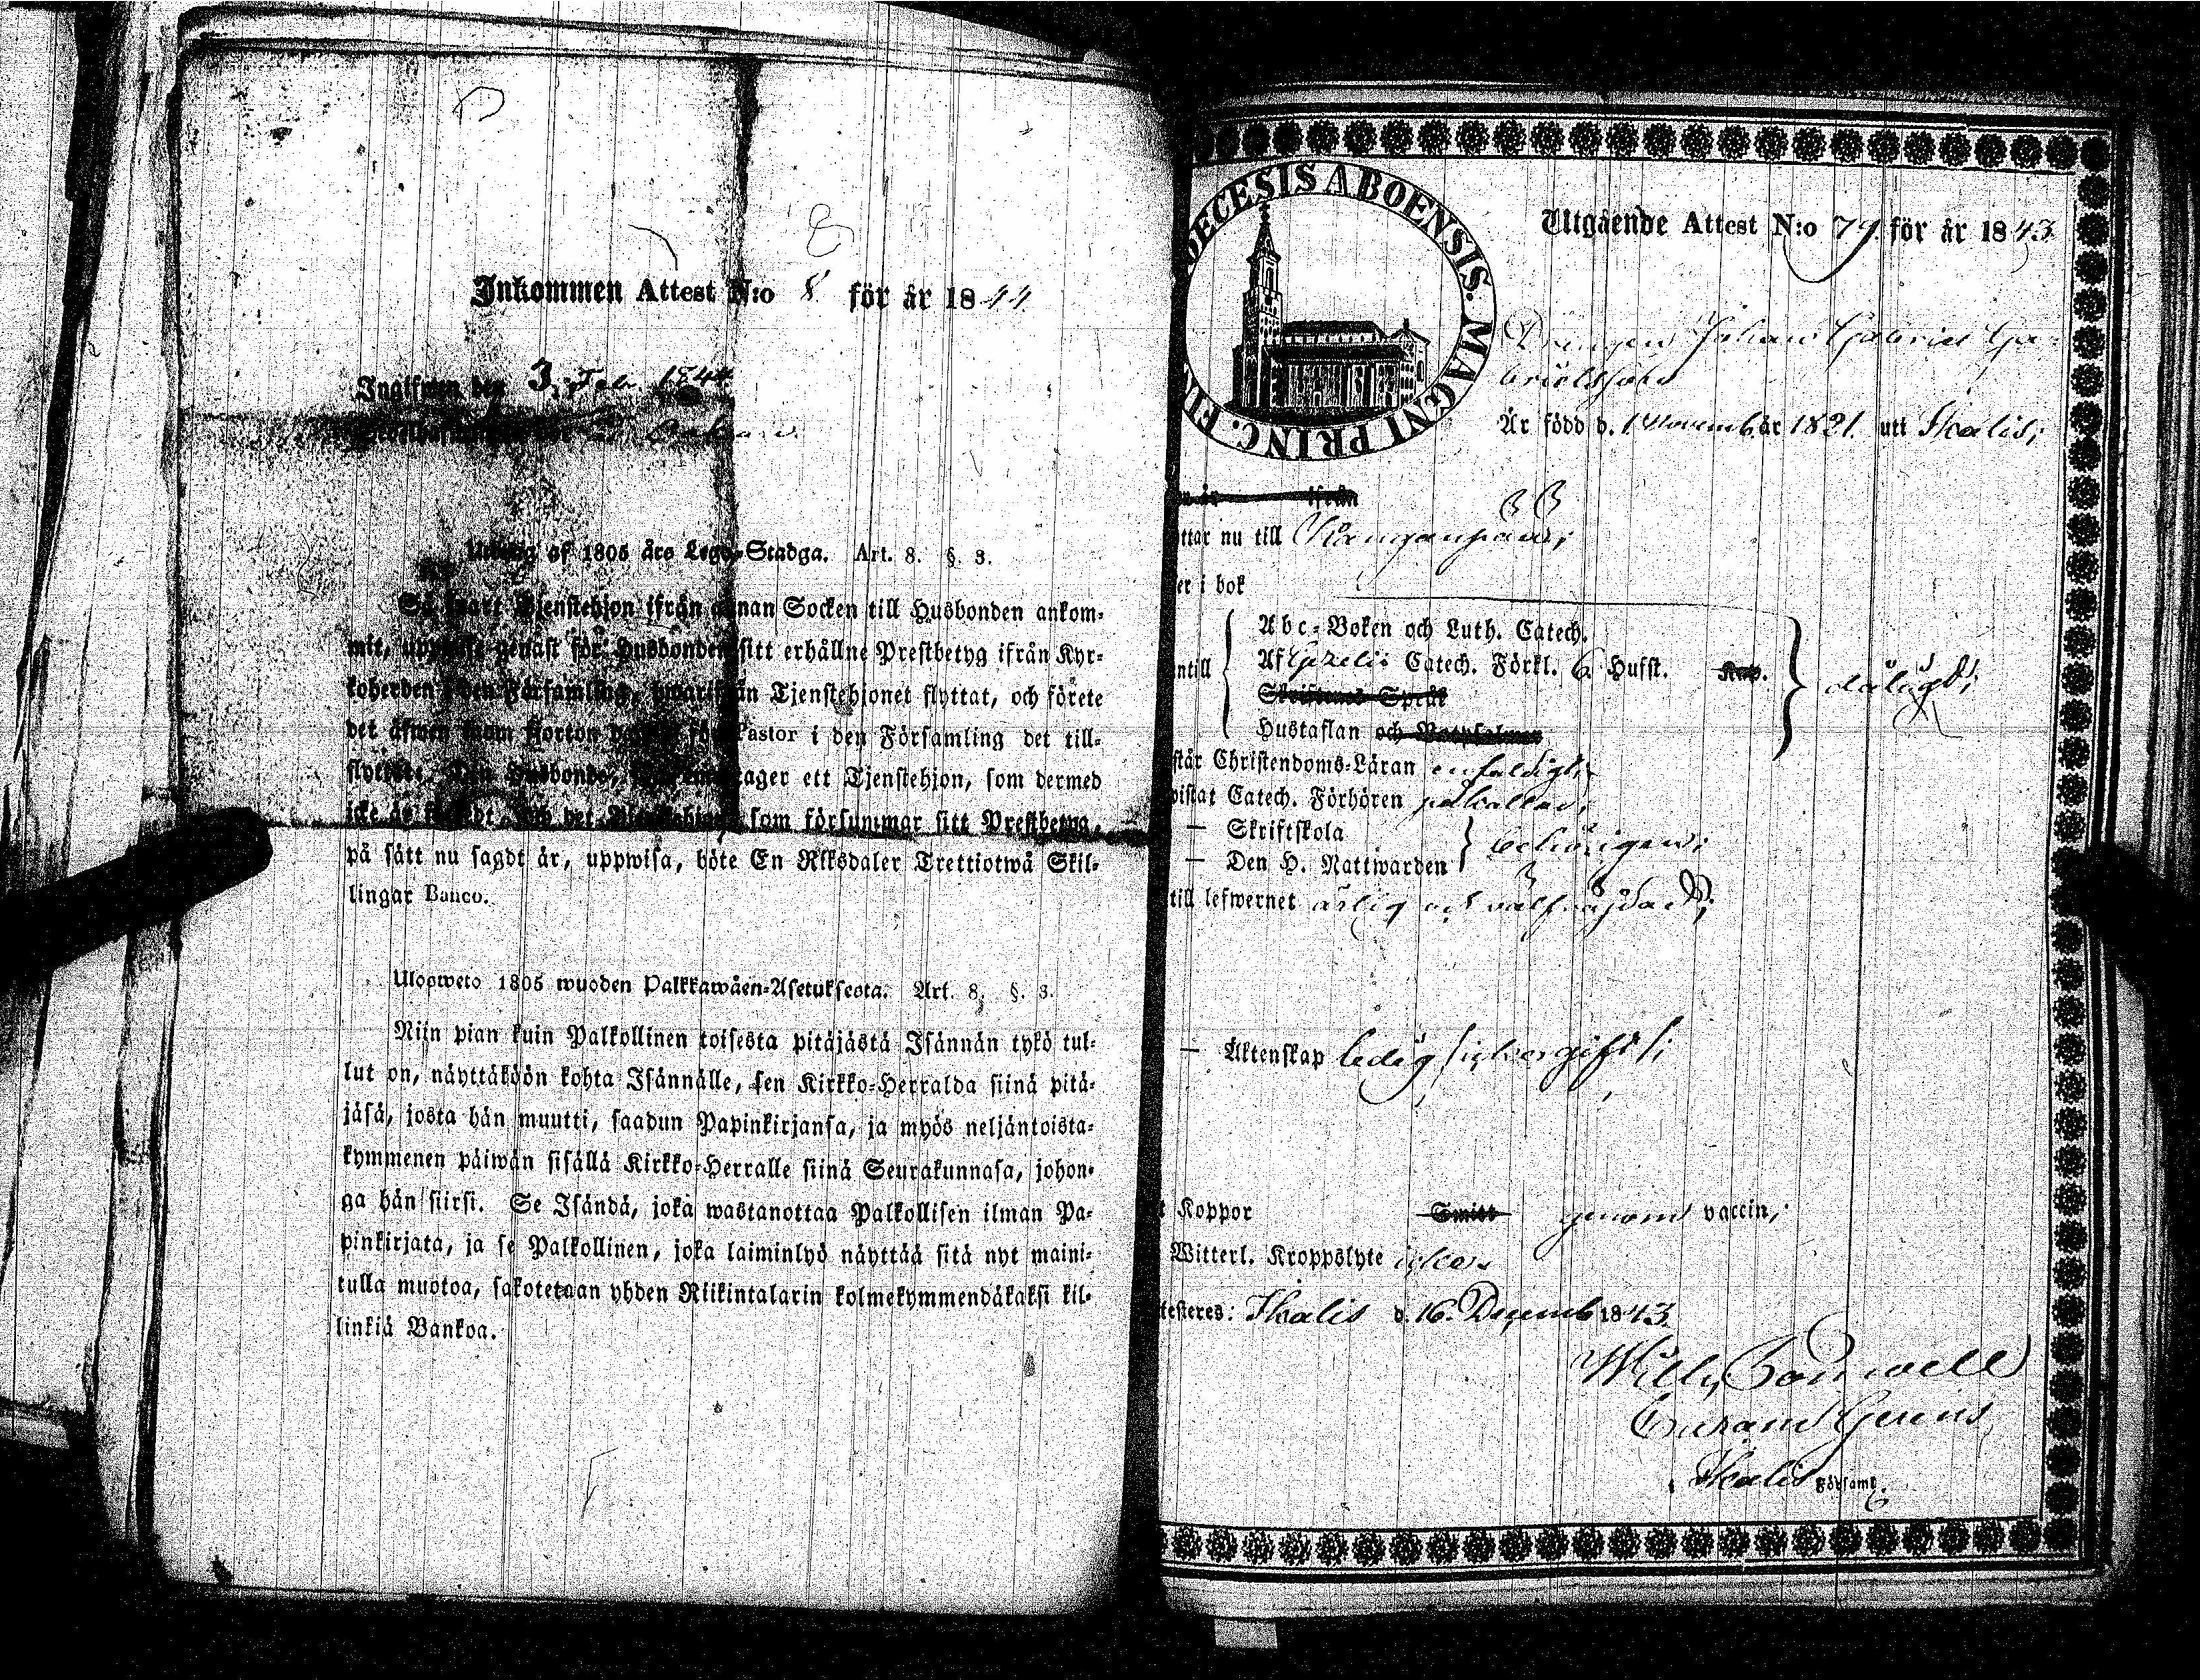 Inkommen Attest N:o 8 för år 1844.
3. Feb. 1844
af 1805 års Lego-Stadga. Art. 8. §. 3.
Så snart Tjenstehjon ifrån annan Socken till Husbonden ankom-
mit, genast för Husbonden sitt erhållne Prestbetyg ifrån Kyr-
koherden i den Församling, hwarifrån Tjenstehjonet flyttat, och förete
det äfwen inom fjorton Pastor i den Församling det till-
Husbonde, tager ett Tjenstehjon, som dermed
icke är som försummar sitt Prestbetyg,
på sätt nu sagdt är, uppwisa, böte En Riksdaler Trettiotwå Skil-
lingar Banco.
Ulosweto 1805 wuoden Palkkawäen-Asetuksesta. Art. 8. §. 3.
Niin pian kuin Palkollinen toisesta pitäjästä Isännän tykö tul-
lut on, näyttäköön kohta Isännälle, sen Kirkko-Herralda siinä pitä-
jäsä, josta hän muutti, saadun Papinkirjansa, ja myös neljäntoista-
kymmenen päiwän sisällä Kirkko-Herralle siinä Seurakunnasa, johon-
ga hän siirsi. Se Isändä, joka wastanottaa Palkollisen ilman Pa-
pinkirjata, ja se Palkollinen, joka laiminlyö näyttää sitä nyt maini-
tulla muotoa, sakotetaan yhden Riikintalarin kolmekymmendäkaksi kil-
linkiä Bankoa.
ECESIS ABOENSIS. MAGNI PRINC. FIN
Utgående Attest N:o 79. för år 1843.
Drengen Johan Gabriel Ga-
brielsson
Är född d. 1 Novemb. år 1821. uti Ikalis;
ifrån
ttar nu till
er i bok
Abc-Boken och Luth. Catech.
ntill Af Gezelii Catech. Förkl. 6 Hufst. Kap. dåligt;
Skriftenes Språk
Hustaflan och Botpsalmer
står Christendoms-Läran enfaldigt;
vistat Catech. Förhören på kallad;
— Skriftskola
— Den H. Nattwarden behörigen;
till lefwernet ärlig och wälfräjdad;
— Äktenskap ledig
t Koppor genom vaccin,
Witterl. Kroppslyte icke.
testeres: Ikalis d. 16. Decemb 1843.
Ikalis Församl.